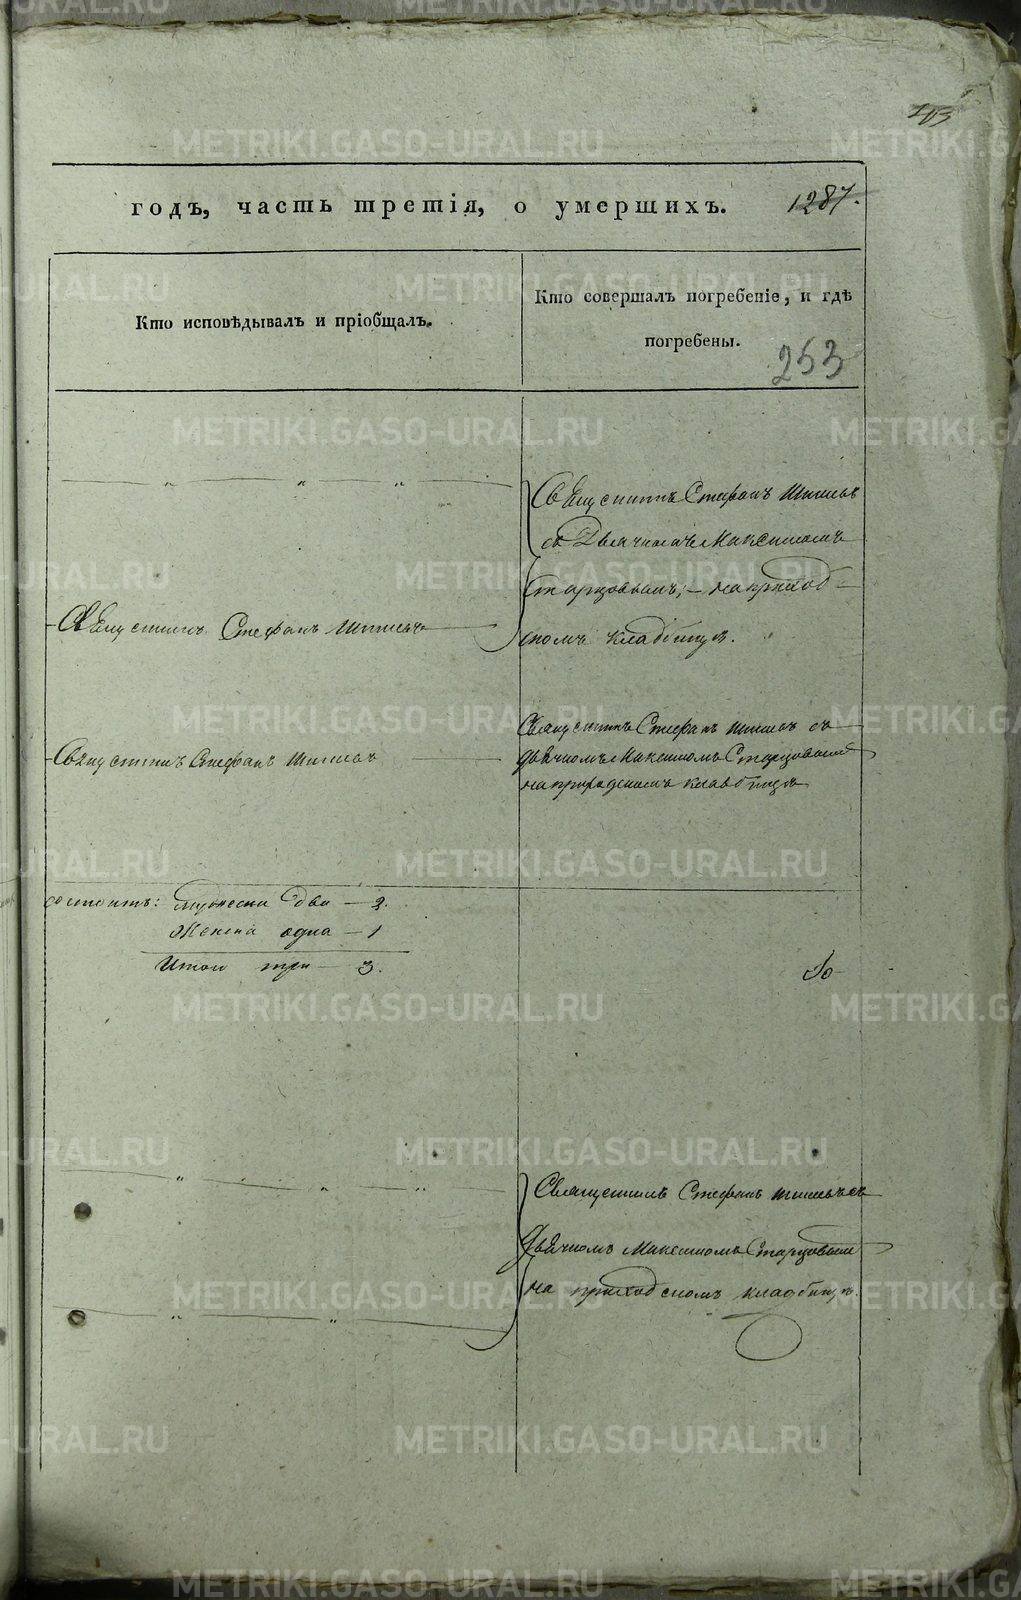 годъ, часть третія, о умершихъ. 1287.
Кто исповѣдывалъ и пріобщалъ.
Кто совершалъ погребеніе, и гдѣ
погребены.
253
Священникъ Стефанъ
съ Дьячкомъ Максимомъ
Старцовымъ; – на приход-
скомъ кладбищѣ.
Священникъ Стефанъ
Священникъ Стефанъ съ
дьячкомъ Максимомъ Старцовымъ
на приходскомъ кладбищѣ
Священникъ Стефанъ
состоитъ: мужеска два – 2.
Женска одна – 1
Итого три – 3.
Священникъ Стефанъ
дьячкомъ Максимомъ Старцовымъ
на приходскомъ кладбищѣ.
METRIKI.GASO-URAL.RU